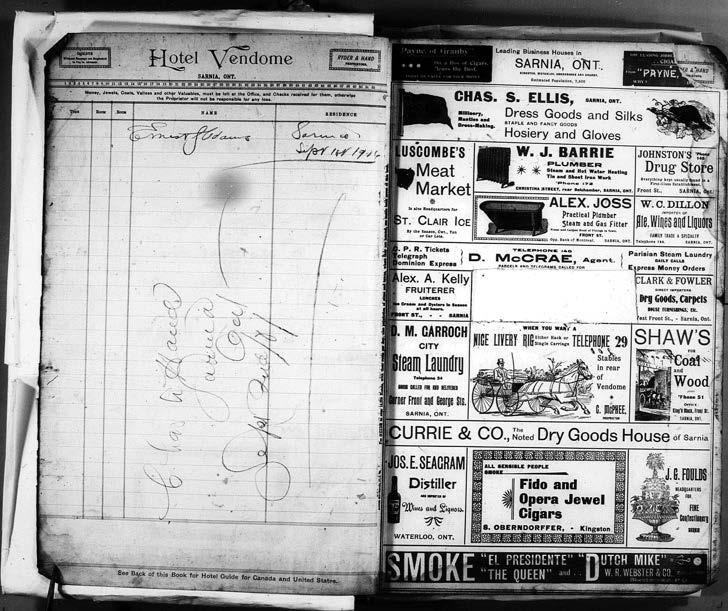 Hotel Vendome
RYDER & HAND
PROPRIETORS.
SARNIA, ONT.
Money, Jewels, Coats, Valises and other Valuables, must be left at the Office, and Checks received for them, otherwise
the Proprietor will not be responsible for any loss.
Time Room NAME RESIDENCE
Ernest J Adams Sarnia
Sept 1st
Chas W Hand
Sarnia
Ont
Sept
See Back of this Book for Hotel Guide for Canada and United States.
Payne, of Granby
Leading Business Houses in
SARNIA, ONT.
"PAYNE,
CHAS. S. ELLIS, SARNIA, ONT.
Millinery,
Mantles and
Dress-Making.
Dress Goods and Silks
STAPLE AND FANCY GOODS
Hosiery and Gloves
LUSCOMBE'S
Meat
Market
Is also Headquarters for
ST. CLAIR ICE
By the Season, Cwt., Ton
or Car Lots.
W. J. BARRIE
PLUMBER
Steam and Hot Water Heating
Tin and Sheet Iron Work
'Phone 172
CHRISTINA STREET, SARNIA, ONT.
JOHNSTON'S
Drug Store
Front St., SARNIA,
ALEX. JOSS
Practical Plumber
Steam and Gas Fitter
FRONT ST.
Opp. Bank of Montreal, SARNIA, ONT.
W. C. DILLON
IMPORTER OF
Ale, Wines and Liquors
FAMILY TRADE A SPECIALTY
SARNIA, ONT.
C. P. R. Tickets
Telegraph
Dominion Express
TELEPHONE 146
D. McCRAE, Agent.
PARCELS AND TELEGRAMS CALLED FOR
Parisian Steam Laundry
DAILY CALLS
Express Money Orders
Alex. A. Kelly
FRUITERER
LUNCHES
Ice Cream and Oysters in Season
at all hours.
FRONT ST., - - SARNIA
CLARK & FOWLER
DIRECT IMPORTERS
Dry Goods, Carpets
HOUSE FURNISHINGS, Etc.
Front St., - Sarnia, Ont.
D. M. CARROCH
CITY
Steam Laundry
Telephone 24
GOODS CALLED FOR AND DELIVERED
Corner Front and George Sts.
SARNIA, ONT.
WHEN YOU WANT A
NICE LIVERY RIG
Either Hack or
Single Carriage
TELEPHONE 29
Stables
in rear
of
Vendome
C. McPHEE,
PROPRIETOR
SHAW'S
FOR
Coal
and
Wood
'Phone 51
CURRIE & CO., The Noted Dry Goods House of Sarnia
JOS. E. SEAGRAM
Distiller
AND IMPORTER OF
Wines and Liquors
WATERLOO, ONT.
ALL SENSIBLE PEOPLE
SMOKE
Fido and
Opera Jewel
Cigars
S. OBERNDORFFER, - Kingston
J. G. FOULDS
HEADQUARTERS
FOR
FINE
Confectionery
SARNIA
SMOKE "EL PRESIDENTE" "DUTCH MIKE"
"THE QUEEN" and W. R. WEBSTER & CO.